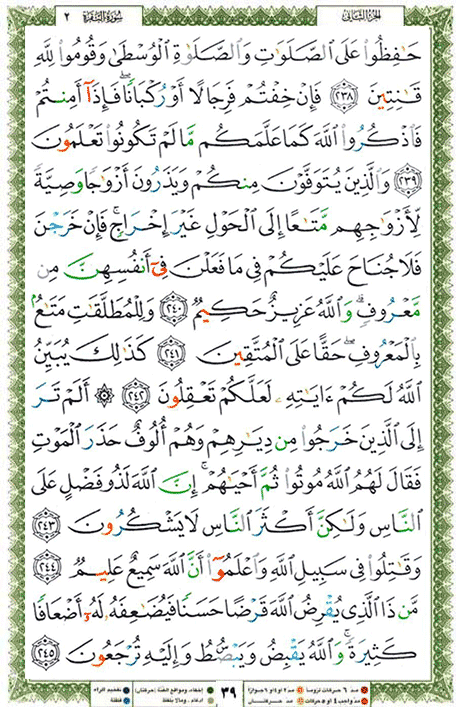 الجزء الثاني سورة البقرة ٢
حَـٰفِظُوا۟ عَلَى ٱلصَّلَوَٰتِ وَٱلصَّلَوٰةِ ٱلْوُسْطَىٰ وَقُومُوا۟ لِلَّهِ
قَـٰنِتِينَ ﴿٢٣٨﴾ فَإِنْ خِفْتُمْ فَرِجَالًا أَوْ رُكْبَانًا ۖ فَإِذَآ أَمِنتُمْ
فَٱذْكُرُوا۟ ٱللَّهَ كَمَا عَلَّمَكُم مَّا لَمْ تَكُونُوا۟ تَعْلَمُونَ
﴿٢٣٩﴾ وَٱلَّذِينَ يُتَوَفَّوْنَ مِنكُمْ وَيَذَرُونَ أَزْوَٰجًا وَصِيَّةً
لِّأَزْوَٰجِهِم مَّتَـٰعًا إِلَى ٱلْحَوْلِ غَيْرَ إِخْرَاجٍ ۚ فَإِنْ خَرَجْنَ
فَلَا جُنَاحَ عَلَيْكُمْ فِى مَا فَعَلْنَ فِىٓ أَنفُسِهِنَّ مِن
مَّعْرُوفٍ ۗ وَٱللَّهُ عَزِيزٌ حَكِيمٌ ﴿٢٤٠﴾ وَلِلْمُطَلَّقَـٰتِ مَتَـٰعٌۢ
بِٱلْمَعْرُوفِ ۖ حَقًّا عَلَى ٱلْمُتَّقِينَ ﴿٢٤١﴾ كَذَٰلِكَ يُبَيِّنُ
ٱللَّهُ لَكُمْ ءَايَـٰتِهِۦ لَعَلَّكُمْ تَعْقِلُونَ ﴿٢٤٢﴾ ۞ أَلَمْ تَرَ
إِلَى ٱلَّذِينَ خَرَجُوا۟ مِن دِيَـٰرِهِمْ وَهُمْ أُلُوفٌ حَذَرَ ٱلْمَوْتِ
فَقَالَ لَهُمُ ٱللَّهُ مُوتُوا۟ ثُمَّ أَحْيَـٰهُمْ ۚ إِنَّ ٱللَّهَ لَذُو فَضْلٍ عَلَى
ٱلنَّاسِ وَلَـٰكِنَّ أَكْثَرَ ٱلنَّاسِ لَا يَشْكُرُونَ ﴿٢٤٣﴾
وَقَـٰتِلُوا۟ فِى سَبِيلِ ٱللَّهِ وَٱعْلَمُوٓا۟ أَنَّ ٱللَّهَ سَمِيعٌ عَلِيمٌ ﴿٢٤٤﴾
مَّن ذَا ٱلَّذِى يُقْرِضُ ٱللَّهَ قَرْضًا حَسَنًا فَيُضَـٰعِفَهُۥ لَهُۥٓ أَضْعَافًا
كَثِيرَةً ۚ وَٱللَّهُ يَقْبِضُ وَيَبْصُۜطُ وَإِلَيْهِ تُرْجَعُونَ ﴿٢٤٥﴾
٣٩